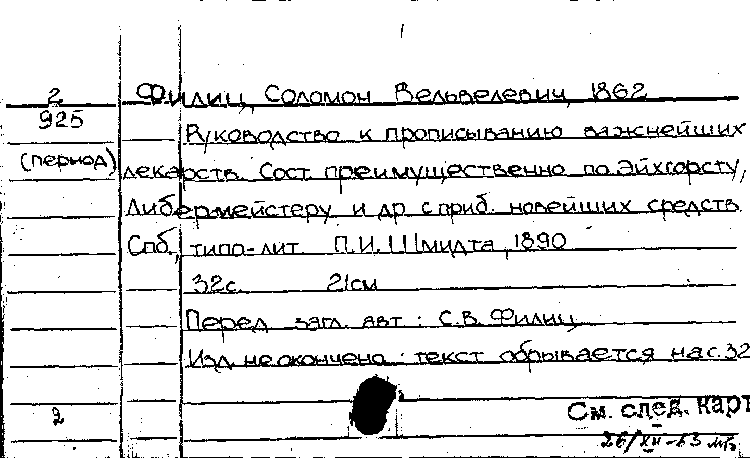 2 Филиц, Соломон Вельвелевич, 1862
925
Руководство к прописыванию важнейших
(период) лекарств. Сост. преимущественно по Эйхгорсту,
Либермейстеру и др. с приб. новейших средств.
Спб., типо-лит. П.И. Шмидта, 1890
32с. 21см
Перед загл. авт: С.В. Филиц
Изд. не окончено: текст обрывается на с.32
2
См. след. карт
26/XII-63